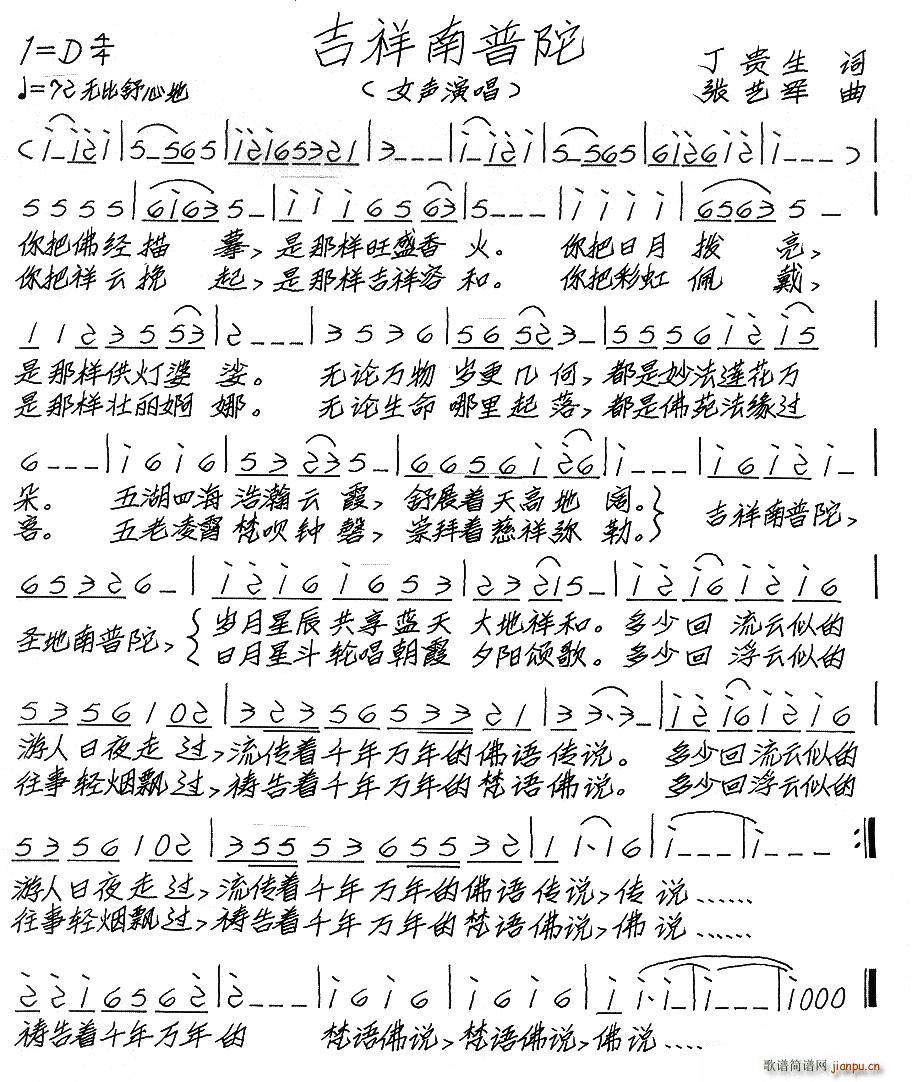 吉祥南普陀
1=D 4/4
♩=72 无比舒心地
（女声演唱）
丁贵生 词
张艺军 曲
(i_i2i|5_565|i2i65321|3___|i_i2i|5_565|6i26i2|i___)|
5555|6i635_|iii6563|5___|iiii|65635_
你把佛经描 摹，是那样旺盛香 火。 你把日月 拨 亮，
你把祥云挽 起，是那样吉祥容 和。 你把彩虹 佩 戴，
1123553|2___|3536|56523_|5556i2i5|
是那样供灯婆 娑。 无论万物 岁更几 何，都是妙法莲花万
是那样壮丽婀 娜。 无论生命 哪里起 落，都是佛苑法缘过
6___|i6i6|53235_|6656i26|i___|i6i2i_|
朵。 五湖四海 浩瀚云 霞，舒展着天高地 阔。 吉祥南普陀，
客。 五老凌霄 梵呗钟 磬，崇拜着慈祥弥 勒。
65326_|i2i6i653|23215_|i2i6i2i6|
圣地南普陀， 岁月星辰 共享蓝天 大地祥和。多少回 流云似的
日月星斗 轮唱朝霞 夕阳颂歌。多少回 浮云似的
5356102|3235653321|33·3_|i2i6i2i6|
游人日夜走 过，流传着千年万年的佛语传说。 多少回流云似的
往事轻烟飘过，祷告着千年万年的梵语佛说。 多少回浮云似的
5356102|3555365532|1i·i6|i___|i___:|
游人日夜走 过，流传着千年万年的佛语传说，传说……
往事轻烟飘过，祷告着千年万年的梵语佛说，佛说……
22i65622|2___|i6i6|i6i6|ii·i_|i___|i000|
祷告着千年万年的 梵语佛说，梵语佛说，佛说....
歌谱简谱网
jianpu.cn